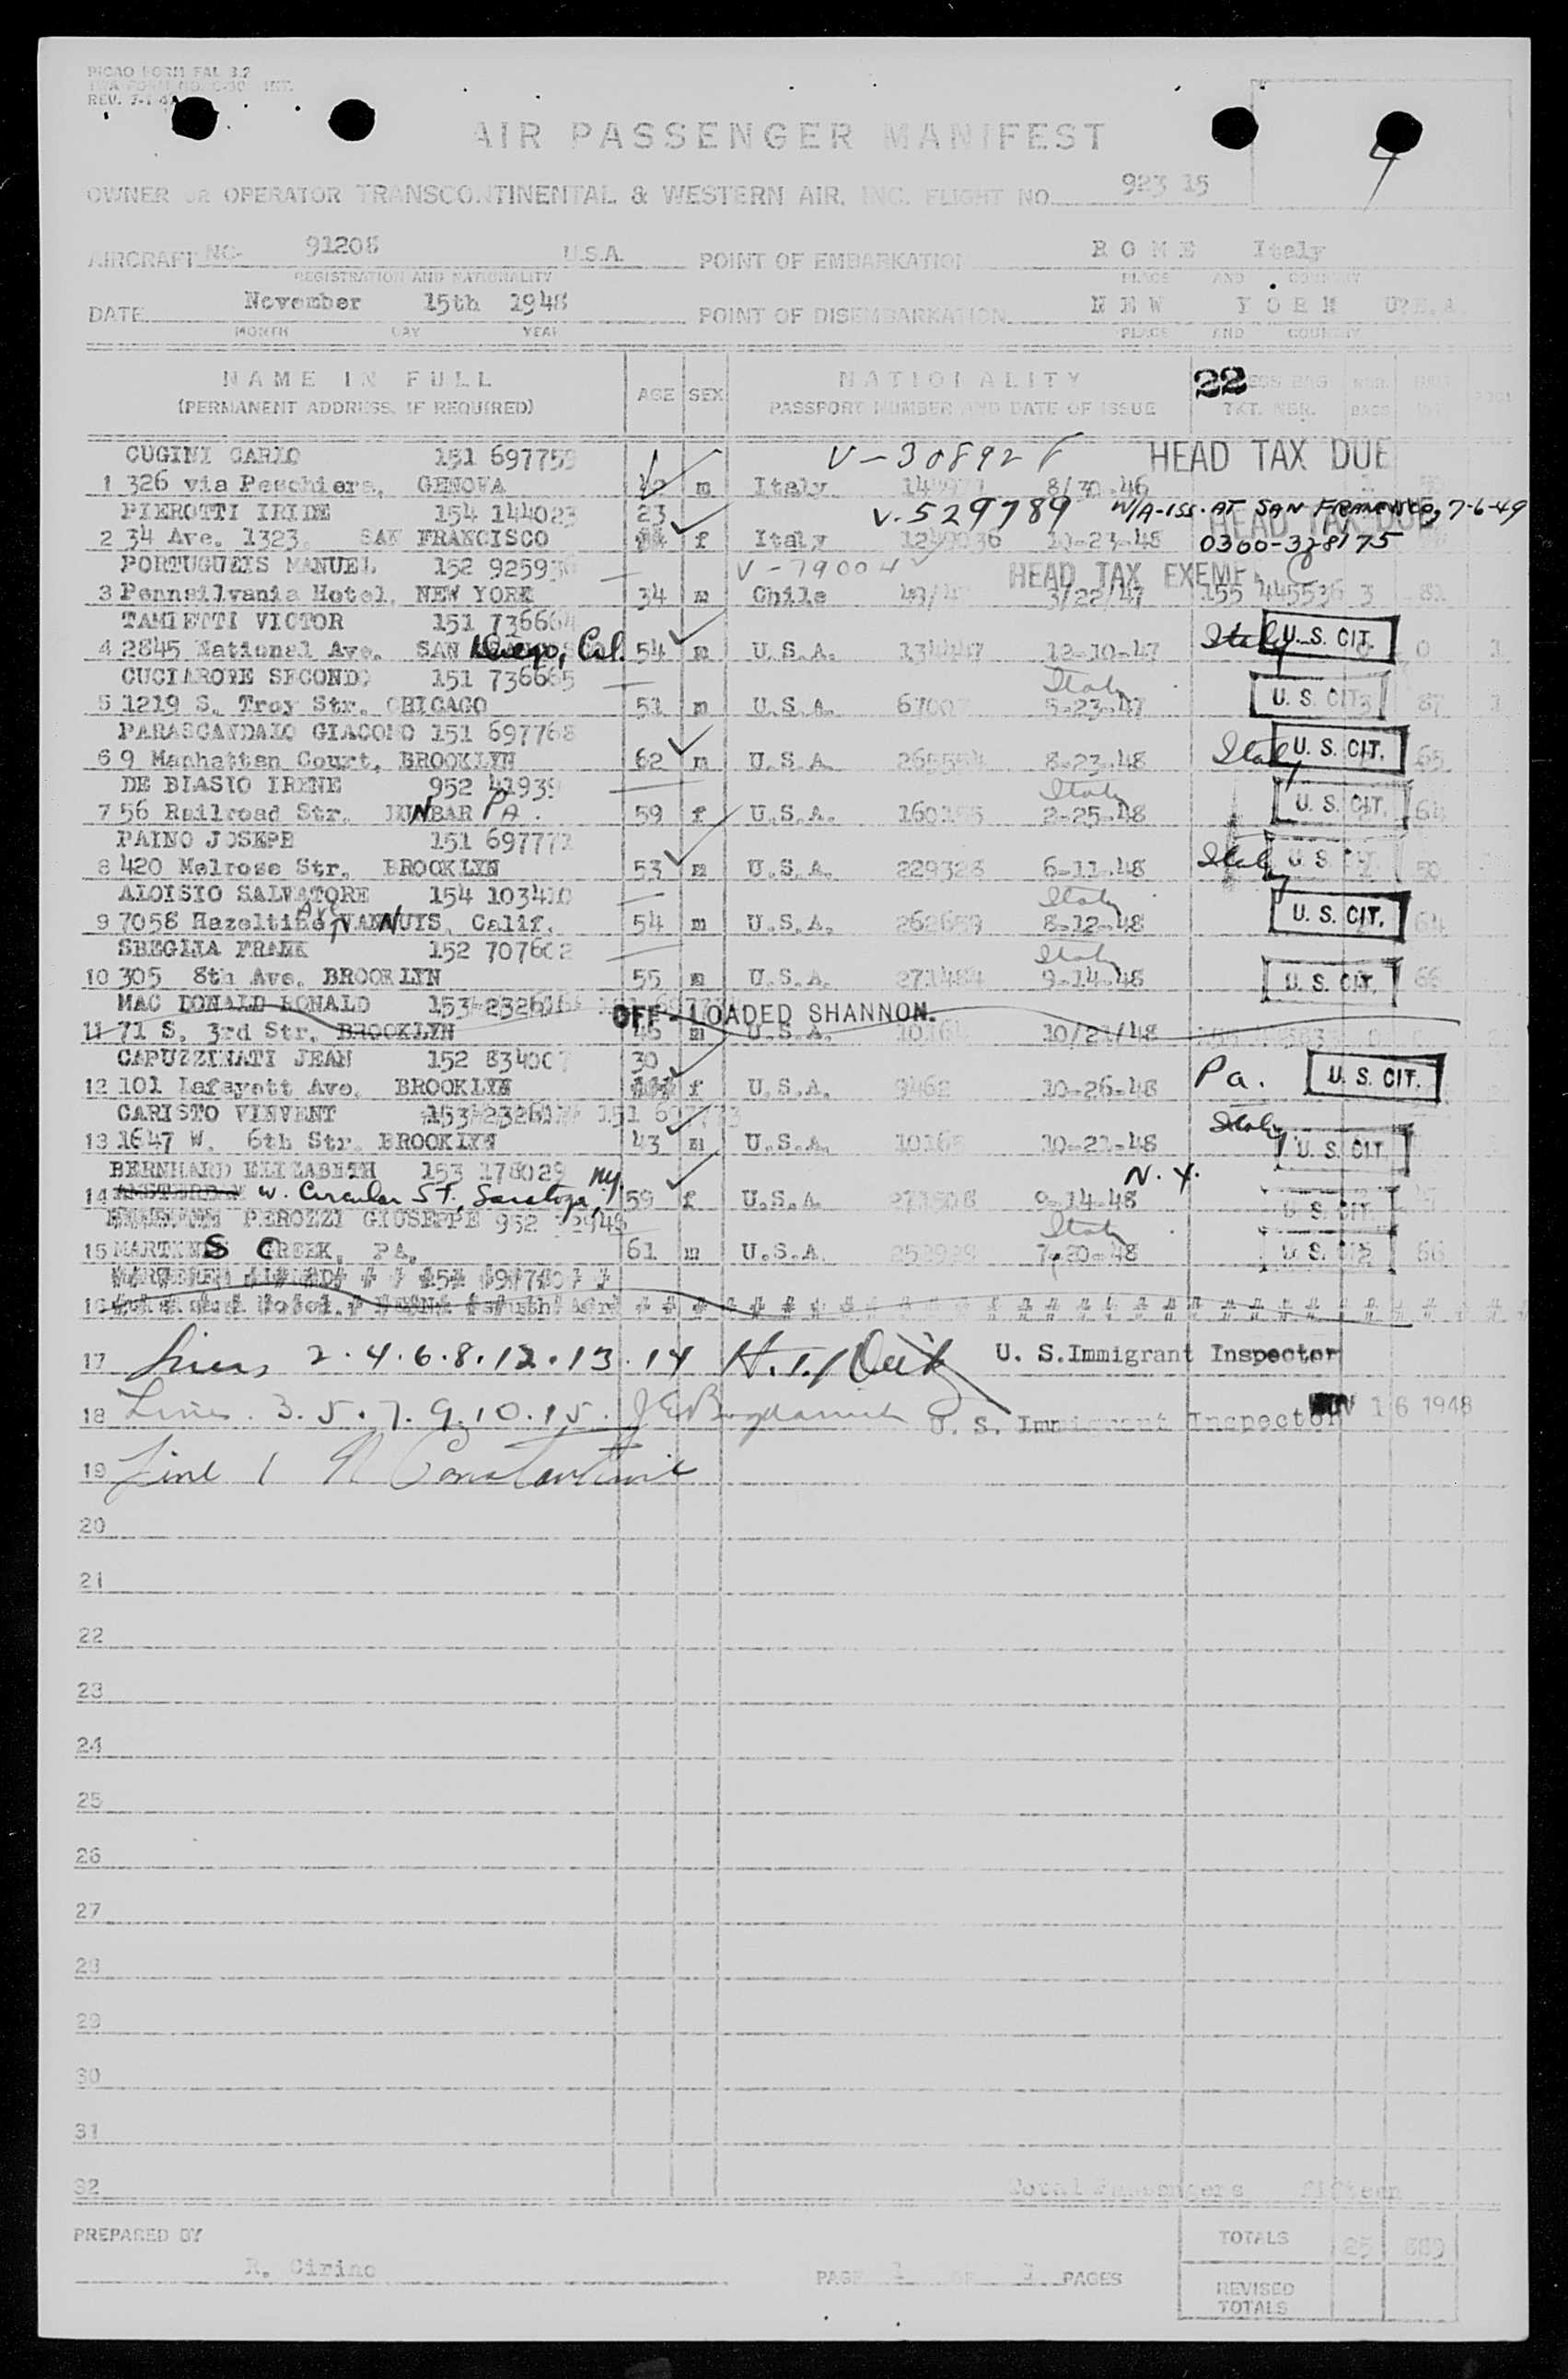 PICAO FORM FAL 3.2
REV. 7-1-4
AIR PASSENGER MANIFEST
4
OWNER OR OPERATOR TRANSCONTINENTAL & WESTERN AIR, INC. FLIGHT NO. 923 15
AIRCRAFT NC- 91208 U.S.A. POINT OF EMBARKATION ROME Italy
REGISTRATION AND NATIONALITY PLACE AND COUNTRY
DATE November 15th 1948 POINT OF DISEMBARKATION NEW YORK U?S.A.
MONTH DAY YEAR PLACE AND COUNTRY
NAME IN FULL AGE SEX NATIONALITY 22
(PERMANENT ADDRESS, IF REQUIRED) PASSPORT NUMBER AND DATE OF ISSUE TKT. NBR. BAGS
CUGINI CARLO 151 697759 V-30892 HEAD TAX DUE
1 326 via Peschiera, GENOVA m Italy 8/30-46
PIEROTTI IRIDE 154 144023 23 V.529789 W/A-ISS. AT SAN FRANCISCO, 7-6-49
HEAD TAX DUE
2 34 Ave. 1323. SAN FRANCISCO f Italy 10-23-48 0300-328175
PORTUGUEIS MANUEL 152 925930 V-79004 HEAD TAX EXEMPT
3 Pennsilvania Hotel, NEW YORK 34 m Chile 3/22/47 155 445536 3 81
TAMIETTI VICTOR 151 736664
4 2845 National Ave. SAN Diego, Cal. 54 m U.S.A. 134447 12-10-47 Italy U. S. CIT. 0 1
CUCIARORE SECONDO 151 736665 Italy
5 1219 S. Troy Str. CHICAGO 51 m U.S.A. 5-23-47 U. S. CIT. 87 1
PARASCANDALO GIACOMO 151 697768
6 9 Manhattan Court, BROOKLYN 62 m U.S.A. 265554 8-23-48 Italy U. S. CIT. 65
DE BIASIO IRENE 952 41939 Italy
7 56 Railroad Str. DUNBAR PA. 59 f U.S.A. 2-25-48 U. S. CIT. 64
PAINO JOSEPH 151 697772
8 420 Melrose Str. BROOKLYN 53 m U.S.A. 229328 6-11-48 Italy U. S. CIT. 50
ALOISIO SALVATORE 154 103410 Italy
9 7058 Hazeltine Ave VAN NUYS, Calif. 54 m U.S.A. 262689 8-12-48 U. S. CIT. 64
SBEGLIA FRANK 152 707602 Italy
10 305 8th Ave. BROOKLYN 55 m U.S.A. 271484 9-14-48 U. S. CIT. 66
MAC DONALD RONALD OFF-LOADED SHANNON.
11 71 S. 3rd Str. BROOKLYN m U.S.A. 10/21/48
CAPUZZINATI JEAN 152 834007 30
12 101 Lafayett Ave. BROOKLYN f U.S.A. 9462 10-26-48 Pa. U. S. CIT.
CARISTO VINVENT 151 697773
13 1647 W. 6th Str. BROOKLYN 43 m U.S.A. 10165 10-21-48 Italy U. S. CIT.
BERNHARD ELIZABETH 153 178029 N.Y.
14 W. Circular St, Saratoga, NY. 59 f U.S.A. 9-14-48 U. S. CIT.
PEROZZI GIUSEPPE 952 Italy
15 MARTINS CREEK, PA. 61 m U.S.A. 252929 7-20-48 U. S. CIT. 66
16
17 Lines 2.4.6.8.12.13.14 U. S. Immigrant Inspector
18 Lines 3.5.7.9.10.15. U. S. Immigrant Inspector NOV 16 1948
19 Line 1 N Constantine
20
21
22
23
24
25
26
27
28
29
30
31
32 Total Passengers fifteen
PREPARED BY R. Cirino PAGE 1 OF PAGES TOTALS 25
REVISED TOTALS